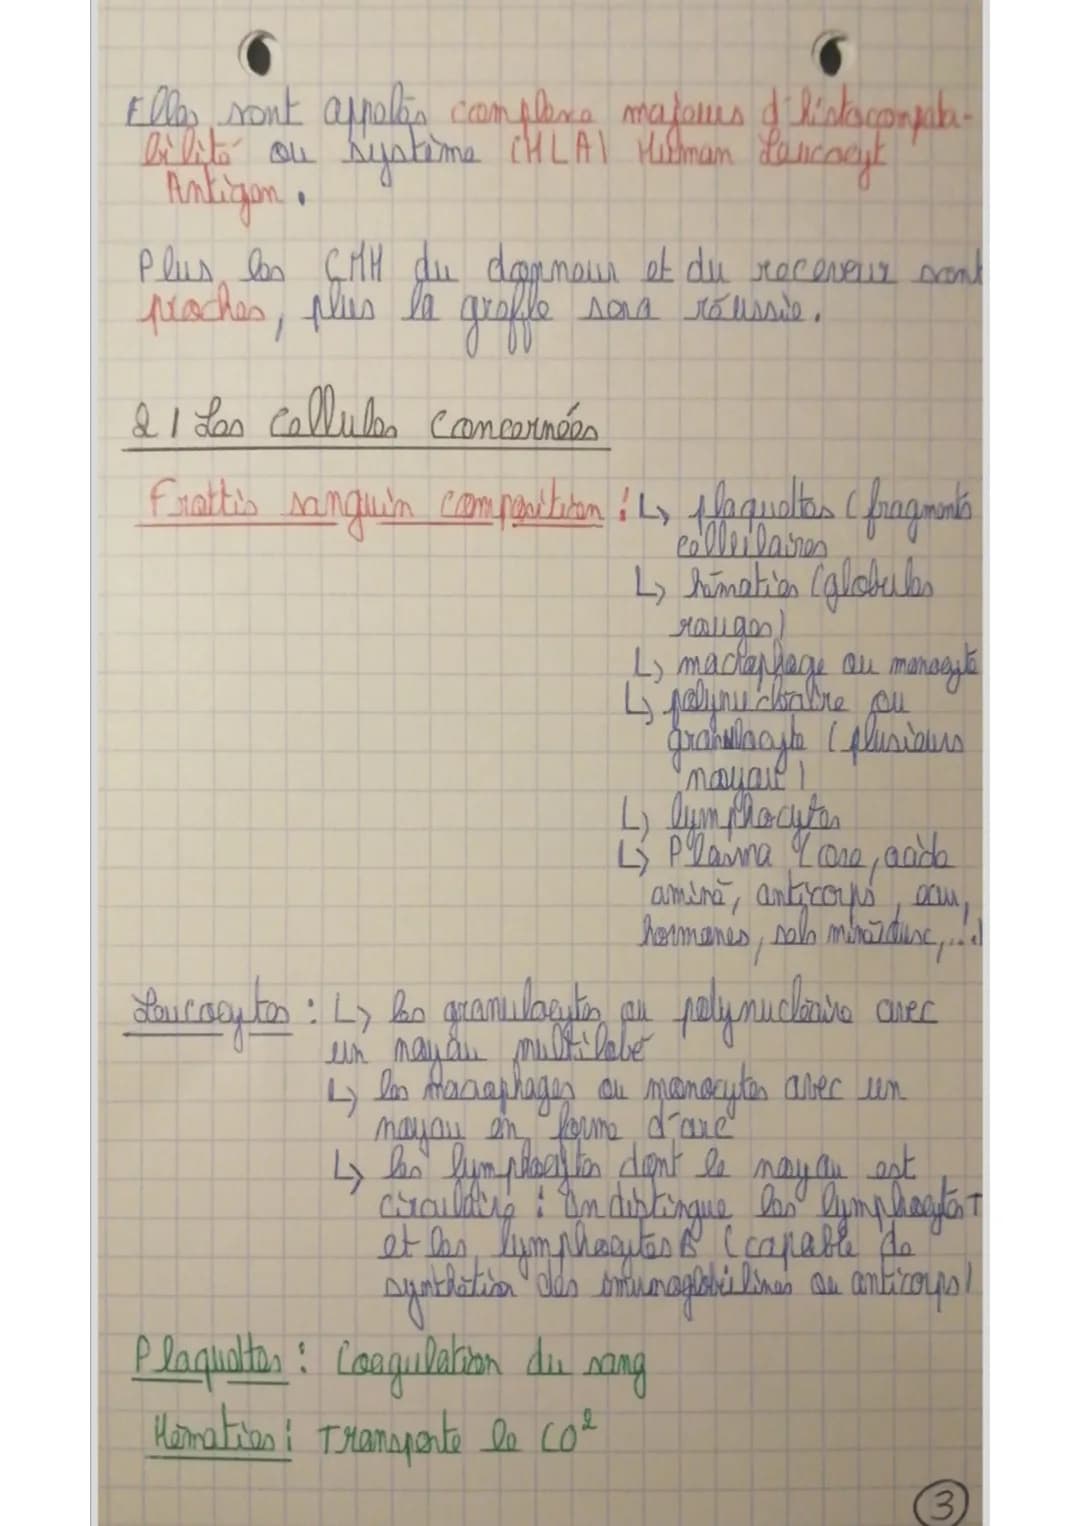 Elles sont appelés complexe majeurs d'histocompata-
bilité ou système (HLA) Human Leucocyt
Antigen.
Plus les CMH du donneur et du receveur sont
proches, plus la greffe sera réussie.
2) Les cellules concernées
Frottis sanguin composition : ↳ plaquettes (fragments
cellulaires
↳ hématies (globules
rouges)
↳ macrophage ou monocyte
↳ polynucléaire ou
granulocyte (plusieurs
noyau)
↳ lymphocytes
↳ Plasma (ose, acide
aminé, anticorps, eau,
hormones, sels minéraux,...)
Leucocytes : ↳ les granulocytes ou polynucléaire avec
un noyau multilobé
↳ les macrophages ou monocytes avec un
noyau en forme d'arc
↳ les lymphocytes dont le noyau est
circulaire : On distingue les lymphocytes T
et les lymphocytes B (capable de
synthétiser des immunoglobulines ou anticorps)
Plaquettes : Coagulation du sang
Hématies : Transporte le CO²
3